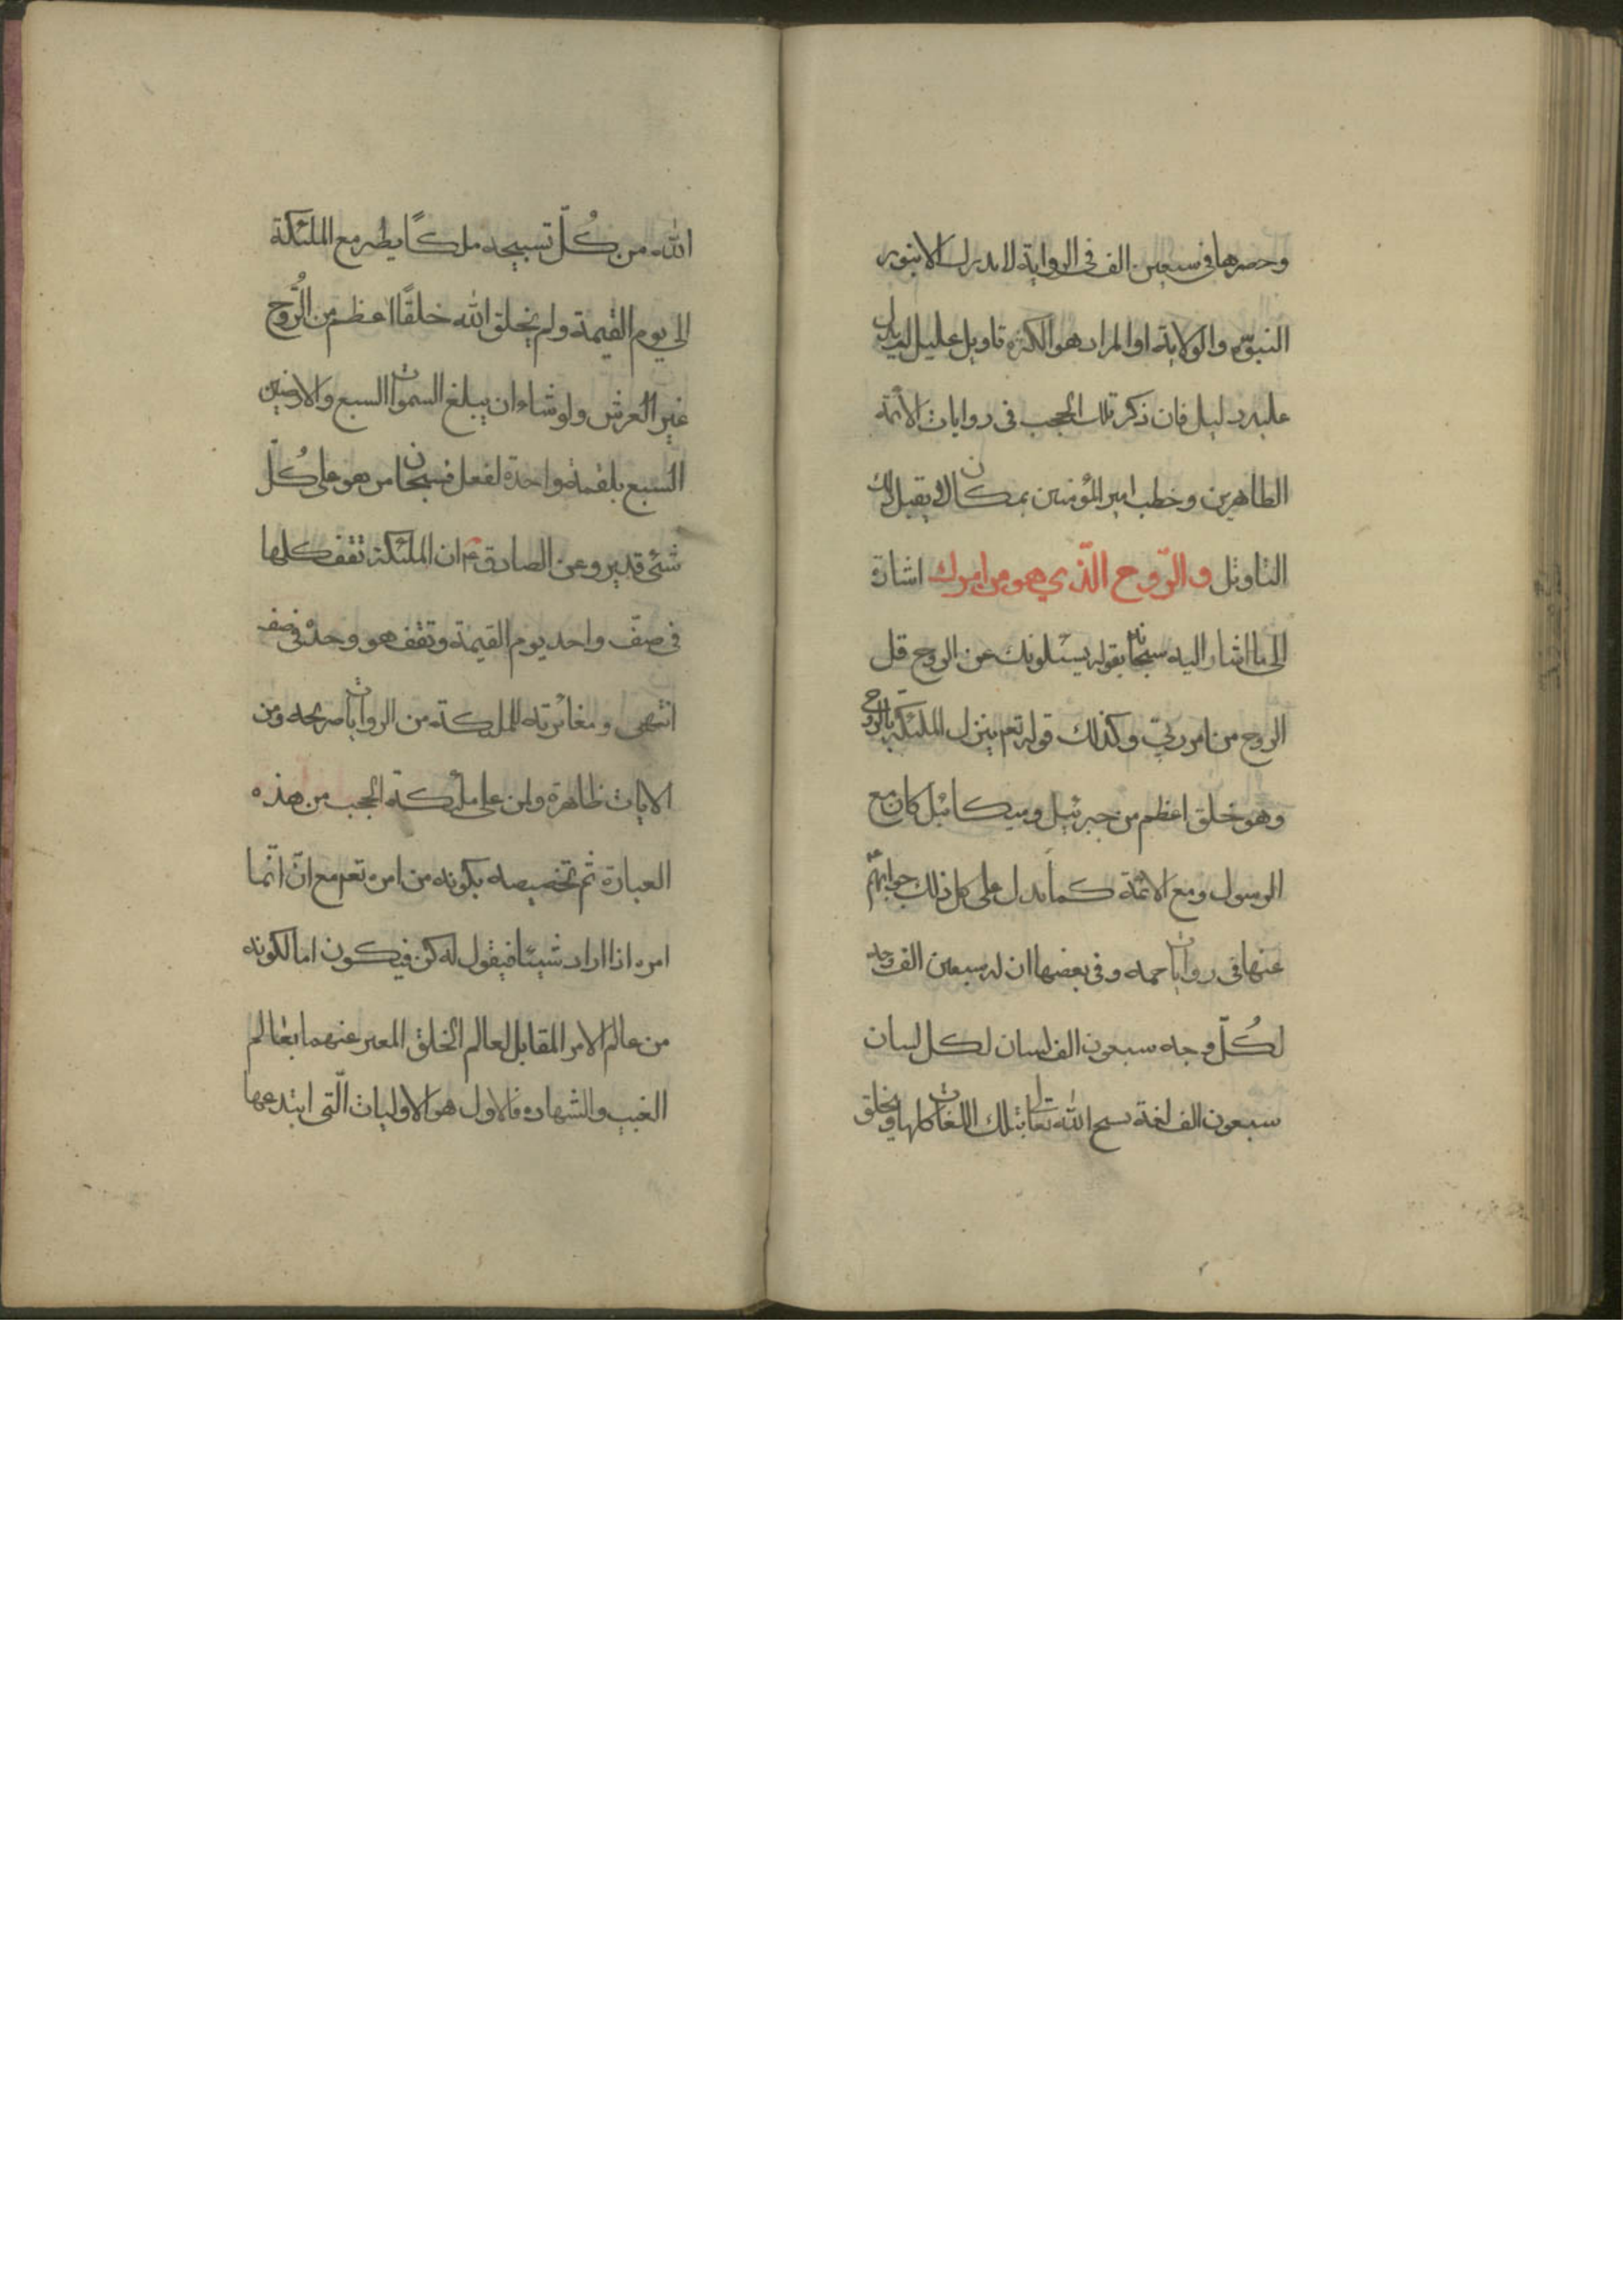 وحصرها فى سبعين الف فى الرواية لا يدرك الا بنور
النبوة والولاية او المراد هو الكثرة تاويل عليل ليس
عليه دليل فان ذكر تلك الحجب فى روايات الائمة
الطاهرين وخطب امير المؤمنين بمكان لا يقبل ذلك
التاويل والرّوح الّذي هو من امرك اشارة
الى ما اشار اليه سبحانه بقوله يسئلونك عن الروح قل
الروح من امر ربّي وكذلك قوله تعم ينزل الملئكة بالروح
وهو خلق اعظم من جبرئيل وميكائيل كان مع
الرسول ومع الائمة كما يدل على كل ذلك جوابهم
عنها فى روايات جمه وفى بعضها ان له سبعين الف وجه
لكُلّ وجه سبعون الف لسان لكل لسان
سبعون الف لغة يسبح الله تعالى بتلك اللغات كلها ويخلق
الله من كُلّ تسبيحه ملكًا يطير مع الملئكة
الى يوم القيمة ولم يخلق الله خلقًا اعظم من الرُّوح
غير العرش ولو شاء ان يبلغ السموات السبع والارضين
السبع بلقمة واحدة لفعل فسبحان من هو على كُلّ
شئ قدير وعن الصادق ع ان الملئكة تقف كلها
فى صفّ واحد يوم القيمة وتقف هو وحده فى صف
انتهى ومغائرته للملئكة من الروايات صريحه ومن
الايات ظاهرة ولمن على ملئكة الحجب من هذه
العبارة ثم تخصيصه بكونه من امره تعم مع انّ انّما
امره اذا اراد شيئا فيقول له كن فيكون اما لكونه
من عالم الامر المقابل لعالم الخلق المعبر عنهما بعالم
الغيب والشهاده فالاول هو الاوليات الّتى ابتدعها